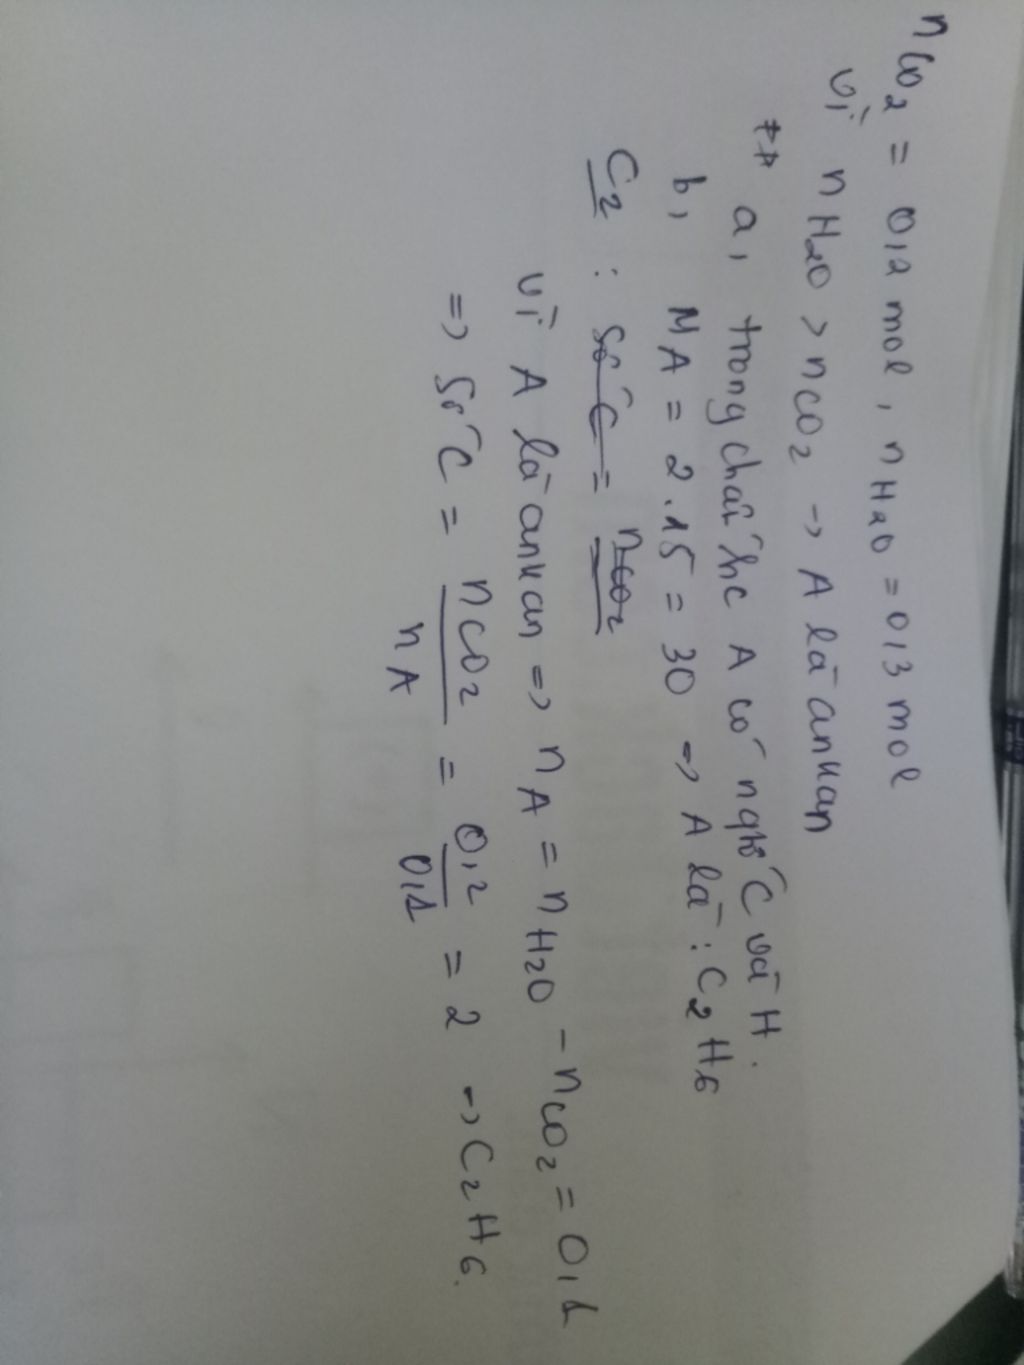 nCO2 = 0,2 mol, nH2O = 0,3 mol
Vì nH2O > nCO2 -> A là ankan
** a, trong chất hc A có ngtố C và H.
b, MA = 2.15 = 30 -> A là: C2H6
C2: số C = nCO2
Vì A là ankan => nA = nH2O - nCO2 = 0,1
=> số C = nCO2/nA = 0,2/0,1 = 2 -> C2H6.